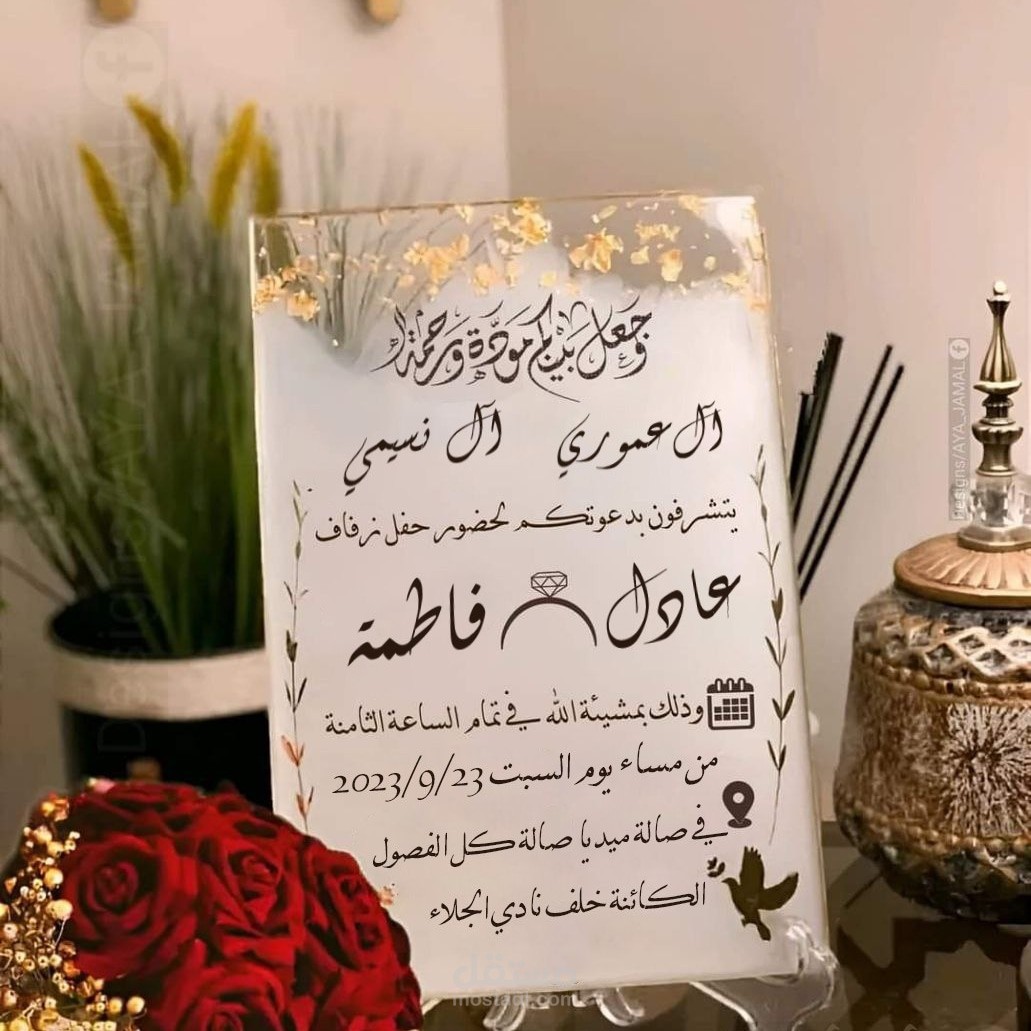 وَجَعَلَ بَيْنَكُم مَوَدَّةً وَرَحْمَةً
آل عموري    آل نسيمي
يتشرفون بدعوتكم لحضور حفل زفاف
عادل    فاطمة
وذلك بمشيئة الله في تمام الساعة الثامنة
من مساء يوم السبت 2023/9/23
في صالة ميديا صالة كل الفصول
الكائنة خلف نادي الجلاء
Designs/AYA_JAMAL
Designs/AYA_JAMAL
مستقل
mostaql.com